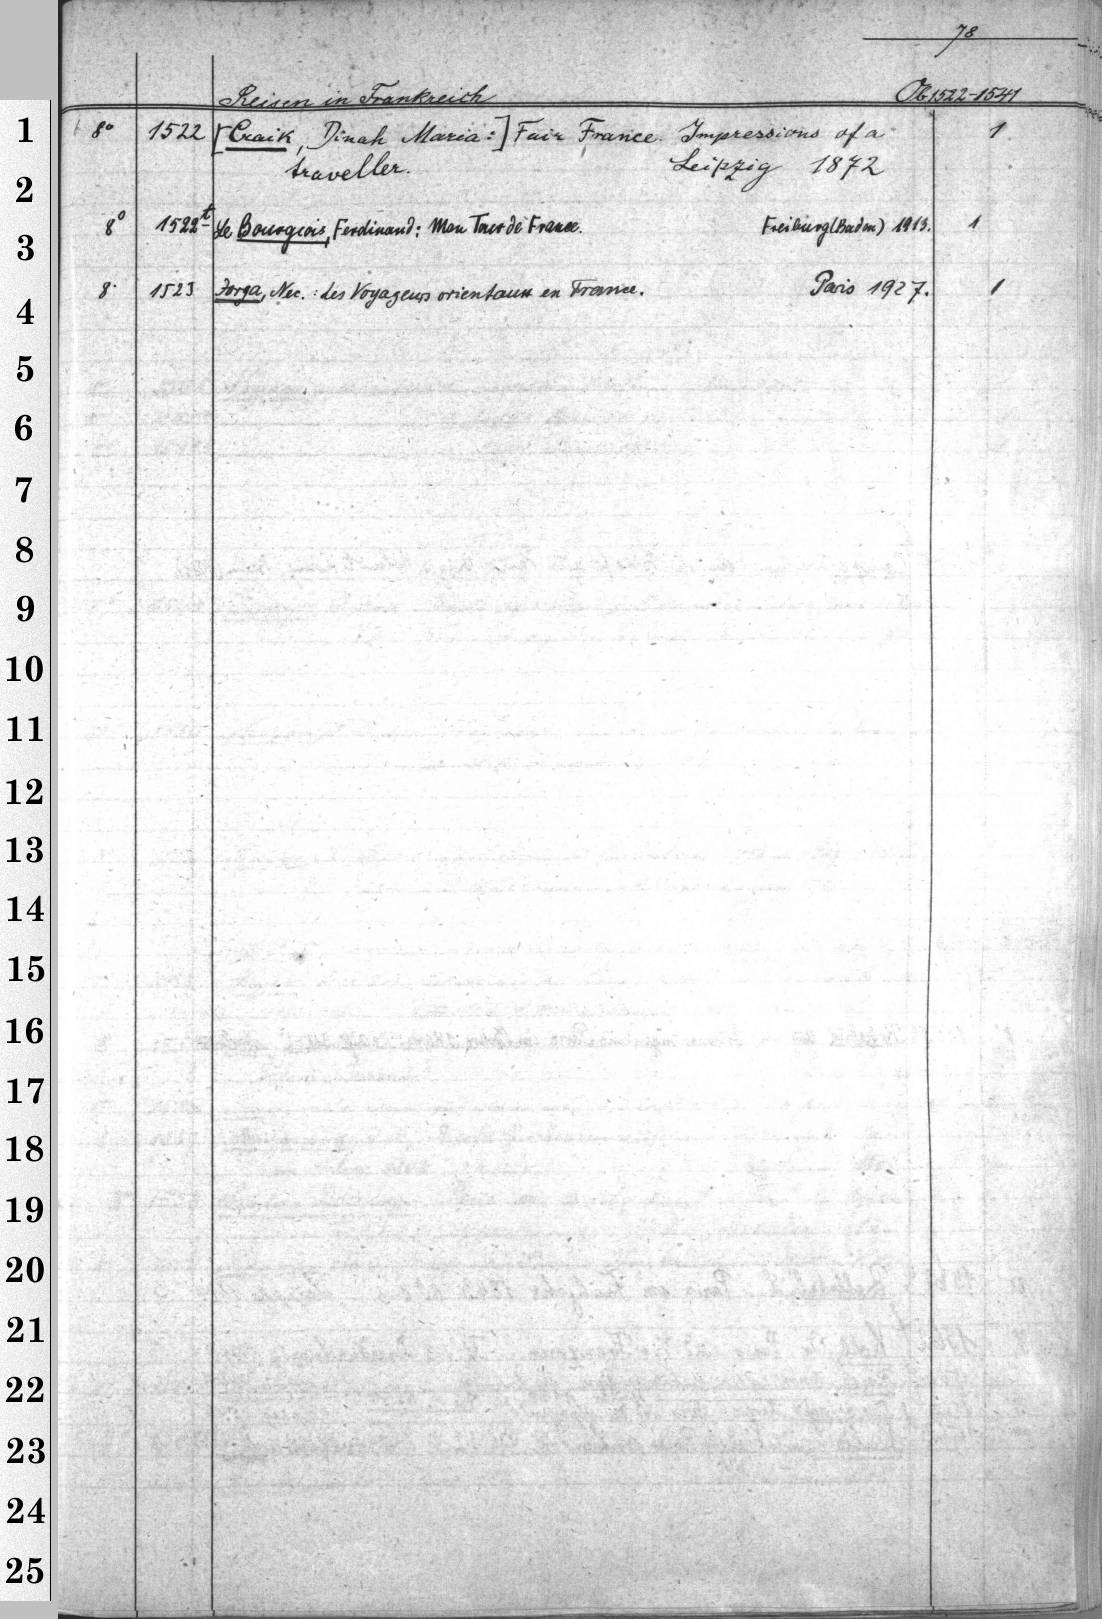 78
Reisen in Frankreich Ob 1522-1541
1 8° 1522 [Craik, Dinah Maria:] Fair France. Impressions of a 1
2 traveller. Leipzig 1872
3 8° 1522t Le Bourgeois, Ferdinand: Mon Tour de France. Freiburg (Baden) 1913. 1
4 8° 1523 Jorga, Nec.: Les Voyageurs orientaux en France. Paris 1927. 1
5
6
7
8
9
10
11
12
13
14
15
16
17
18
19
20
21
22
23
24
25